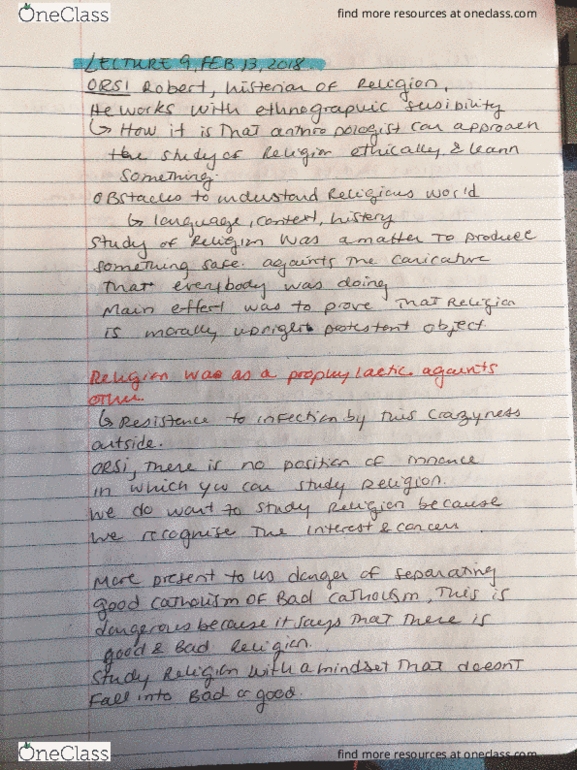 OneClass
find more resources at oneclass.com
LECTURE 9, FEB, 13, 2018.
ORSI Robert, histerian of Religion,
He works with ethnographic sensibility
↳ How it is that anthropologist can approach
the study of Religion ethically, & learn
something.
OBstacles to understand Religious world
↳ language, context, history
Study of Religion was a matter to produce
something safe. againts the caricature
that everybody was doing
Main effert was to prove that Religion
is morally upright protestant object
Religion was as a prophylactic againts
other.
↳ Resistence to infection by this crazyness
outside.
ORSI, there is no position of innonce
in which you can study Religion.
we do want to study Religion because
we recognise the interest & concern
More present to us danger of separating
good catholism OF Bad catholism, This is
dangerous because it says that there is
good & Bad Religion.
Study Religion with a mindset that doesnt
Fall into Bad or good.
OneClass
find more resources at oneclass.com